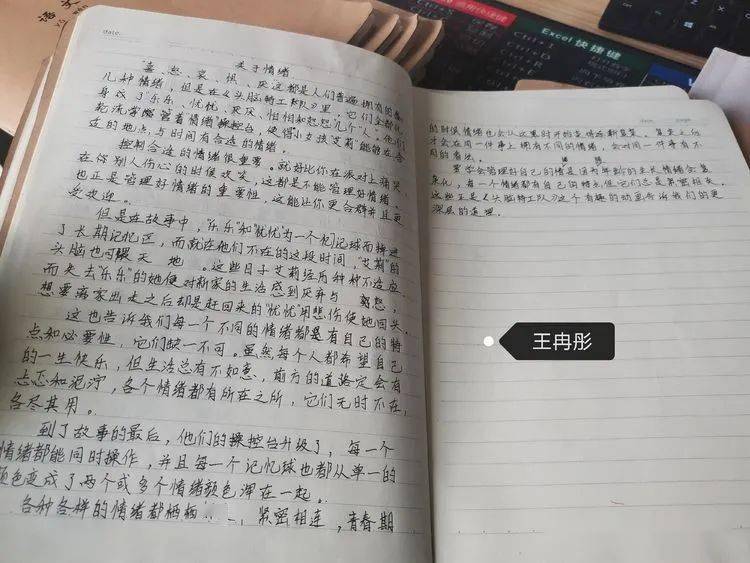 语文
date.
关于情绪
喜、怒、哀、惧、厌这都是人们普遍拥有的基
几种情绪，但是在《头脑特工队》里，它们全都化
身成了乐乐、忧忧、厌厌、怕怕和怒怒"几个"人"。他们
轮流掌管着情绪"操控台，使得小女孩"艾莉"能够在合
适的地点，与时间有合适的情绪。
控制合适的情绪很重要。就好比你在派对上痛哭
在你别人伤心的时候欢笑，这都是不能管理好情绪。
也正是管理好情绪的重要性，这能让你更合群并且更
受欢迎。
但是在故事中，"乐乐"和"忧忧"为一个 记球而转进
了长期记忆区，而就在他们不在的这段时间，"艾莉"的
头脑也 天 地 。这些日子艾莉经历种种不适应
而失去"乐乐"的她便对新家的生活感到厌弃与 怒，
想要离家出走之后却是赶回来的"忧忧"用悲伤使她回头。
这也告诉我们每一个不同的情绪都是有自己的特
点和必要性，它们缺一不可。虽然每个人都希望自己
的一生快乐，但生活总有不如意，前方的道路定会有
忐忑和泥泞，各个情绪都有所在之所，它们无时不在，
各尽其用。
到了故事的最后，他们的操控台升级了，每一个
情绪都能同时操作，并且每一个记忆球也都从单一的
颜色变成了两个或多个情绪颜色浑在一起。
各种各样的情绪都栖栖 紧密相连，青春期
date. page.
的时候情绪也会从这里时开的变得焕新复杂。复杂之后
才会在同一件事上拥有不同的情绪，会对同一件事有不
同的看法。
要学会管理好自己的情是因为年龄的生长情绪会复
杂化，每一个情绪都有自己的特点但它们总是紧密相关。
这些正是《头脑特工队》这个有趣的动画告诉我们的更
深层的道理。
Excel 快捷键
王冉彤